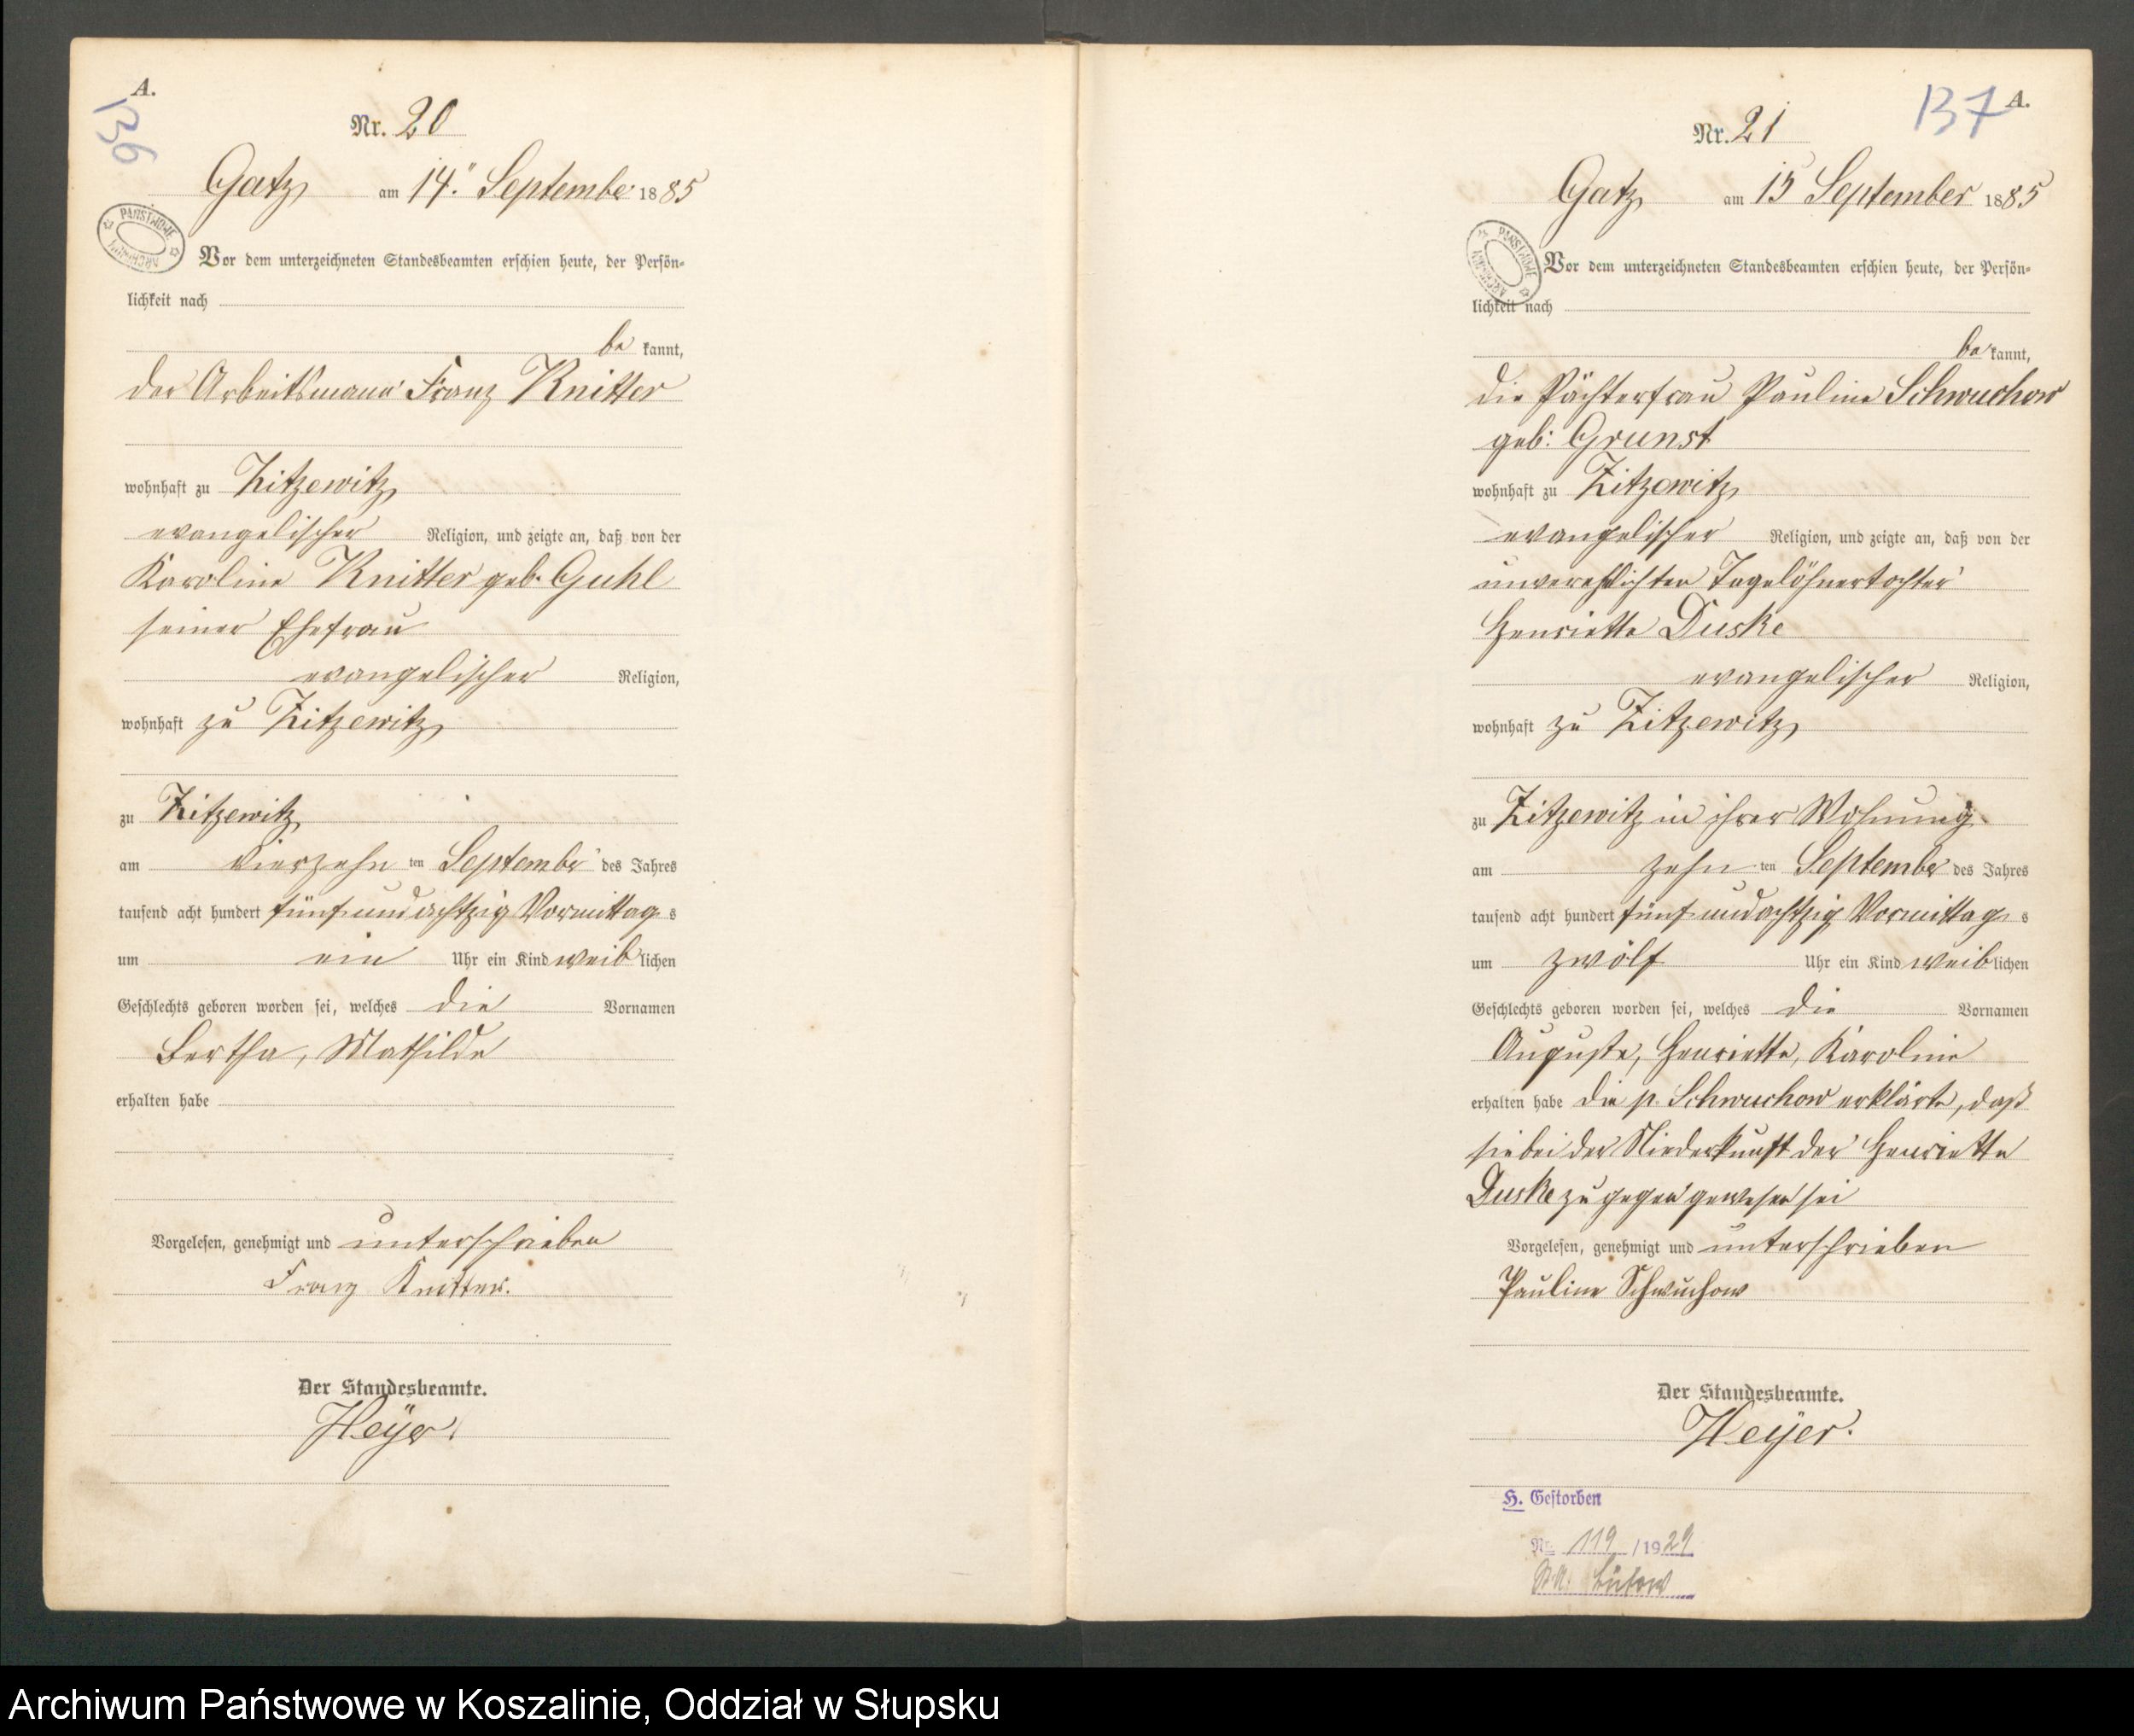 A.
136
Nr. 20
Gatz am 14. September 1885
PAŃSTWOWE ARCHIWUM
Vor dem unterzeichneten Standesbeamten erschien heute, der Persön-
lichkeit nach
be kannt,
der Arbeitsmann Franz Knitter
wohnhaft zu Zitzewitz
evangelischer Religion, und zeigte an, daß von der
Karoline Knitter geb. Guhl
seiner Ehefrau
evangelischer Religion,
wohnhaft zu Zitzewitz
zu Zitzewitz
am vierzehn ten September des Jahres
tausend acht hundert fünf und achtzig Vormittag s
um ein Uhr ein Kind weib lichen
Geschlechts geboren worden sei, welches die Vornamen
Bertha, Mathilde
erhalten habe
Vorgelesen, genehmigt und unterschrieben
Franz Knitter.
Der Standesbeamte.
Heyer.
137 A.
Nr. 21
Gatz am 15 September 1885
PAŃSTWOWE ARCHIWUM
Vor dem unterzeichneten Standesbeamten erschien heute, der Persön-
lichkeit nach
be kannt,
die Pächterfrau Pauline Schwuchow
geb: Grunst
wohnhaft zu Zitzewitz
evangelischer Religion, und zeigte an, daß von der
unverehelichten Tagelöhnertochter
Henriette Duske
evangelischer Religion,
wohnhaft zu Zitzewitz
zu Zitzewitz in ihrer Wohnung
am zehn ten September des Jahres
tausend acht hundert fünf und achtzig Vormittag s
um zwölf Uhr ein Kind weib lichen
Geschlechts geboren worden sei, welches die Vornamen
Auguste, Henriette, Karoline
erhalten habe die p. Schwuchow erklärte, daß
sie bei der Niederkunft der Henriette
Duske zugegen gewesen sei
Vorgelesen, genehmigt und unterschrieben
Pauline Schwuchow
Der Standesbeamte.
Heyer.
H. Gestorben
Nr. 119 / 1929
StA. Bütow
Archiwum Państwowe w Koszalinie, Oddział w Słupsku